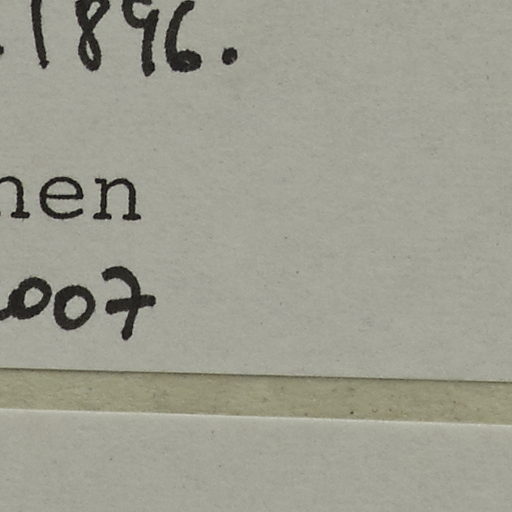 1896.
nen
2007